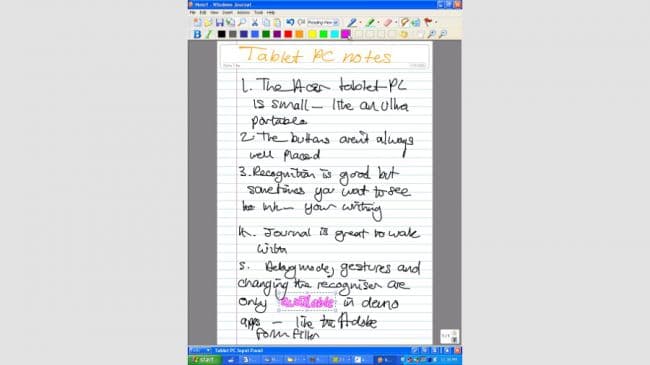 Note1 - Windows Journal
Reading View
Tablet PC notes
1. The Acer tablet PC
is small - like an ultra
portable
2. The buttons aren't always
well placed
3. Recognition is good but
sometimes you want to see
ink - your writing
4. Journal is great to work
with
5. Debug mode, gestures and
changing the recogniser are
only available in demo
apps - like the Adobe
form filler
1/1
Tablet PC Input Panel
start